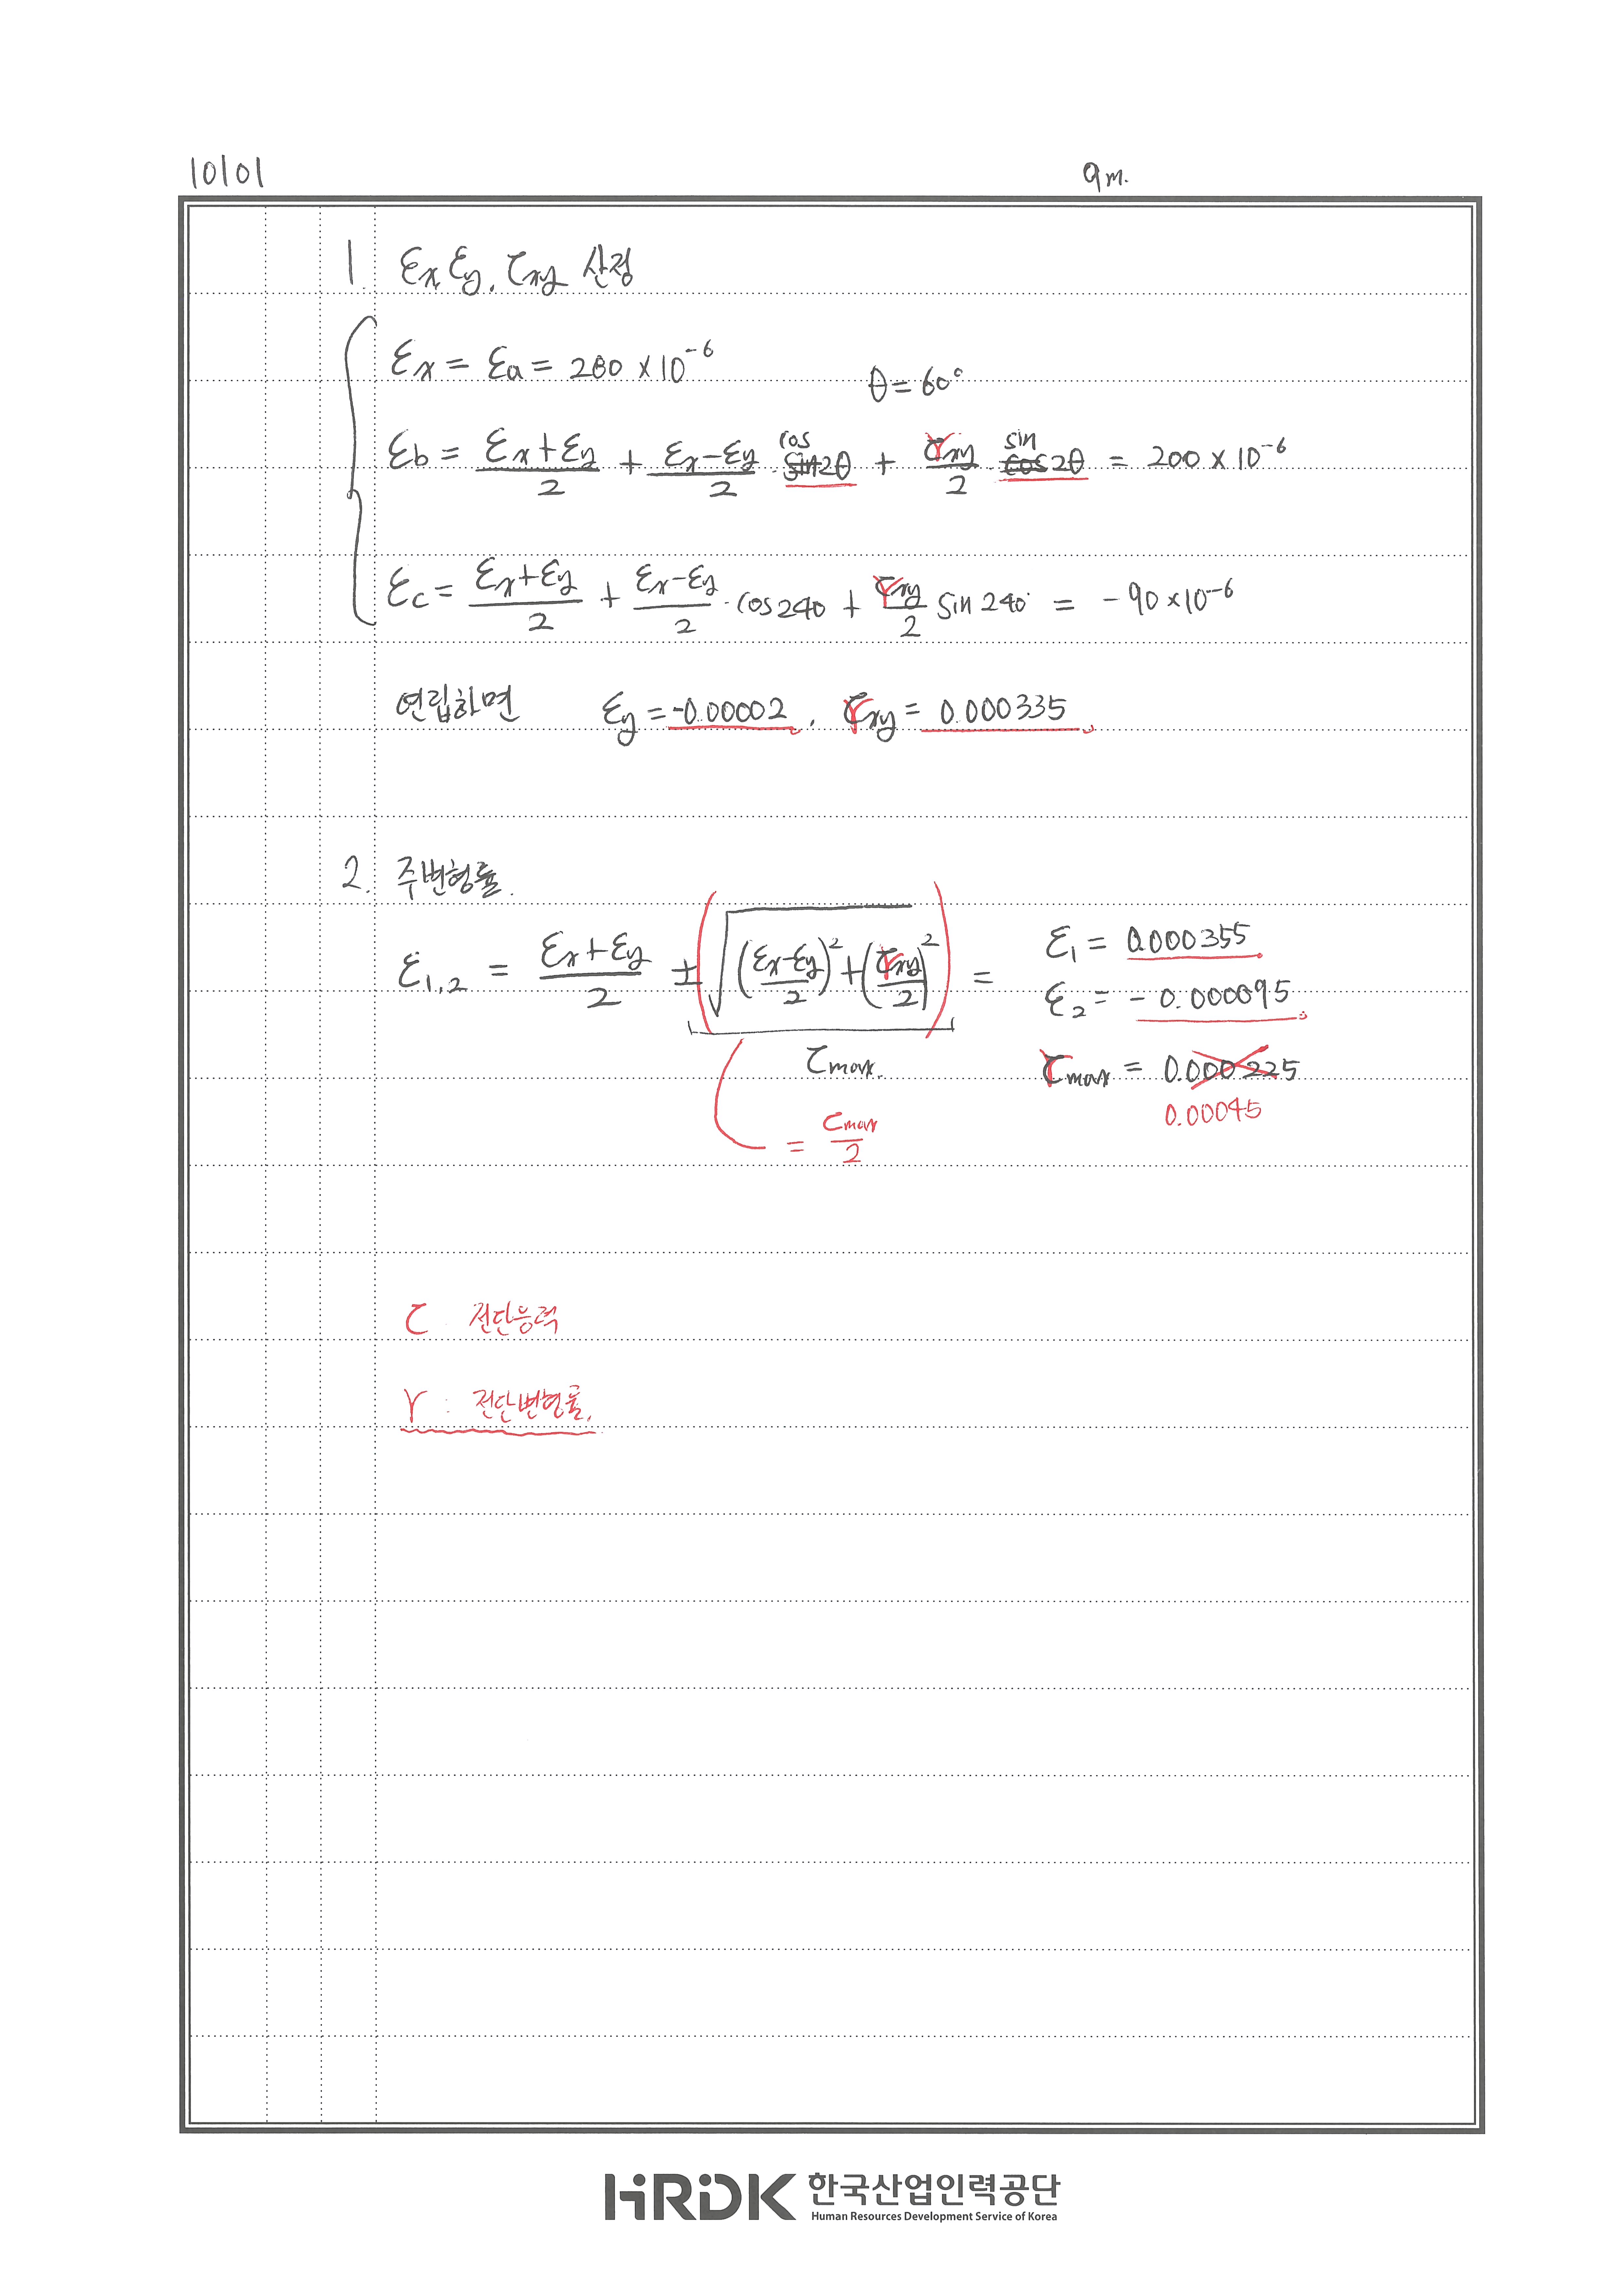 10101
9m.
1. εx, εy, τxy 산정
εx = εa = 280 × 10⁻⁶
θ = 60°
cos sin
εb = (εx+εy)/2 + (εx-εy)/2 · sin2θ + γxy/2 · cos2θ = 200 × 10⁻⁶
εc = (εx+εy)/2 + (εx-εy)/2 · cos240 + γxy/2 sin240 = -90 × 10⁻⁶
연립하면 εy = -0.00002, γxy = 0.000335
2. 주변형률.
ε1,2 = (εx+εy)/2 ± √(((εx-εy)/2)² + (γxy/2)²) = ε1 = 0.000355
ε2 = -0.000095
τmax. γmax = 0.000225
= τmax/2 0.00045
τ 전단응력
γ : 전단변형률.
HRDK 한국산업인력공단
Human Resources Development Service of Korea